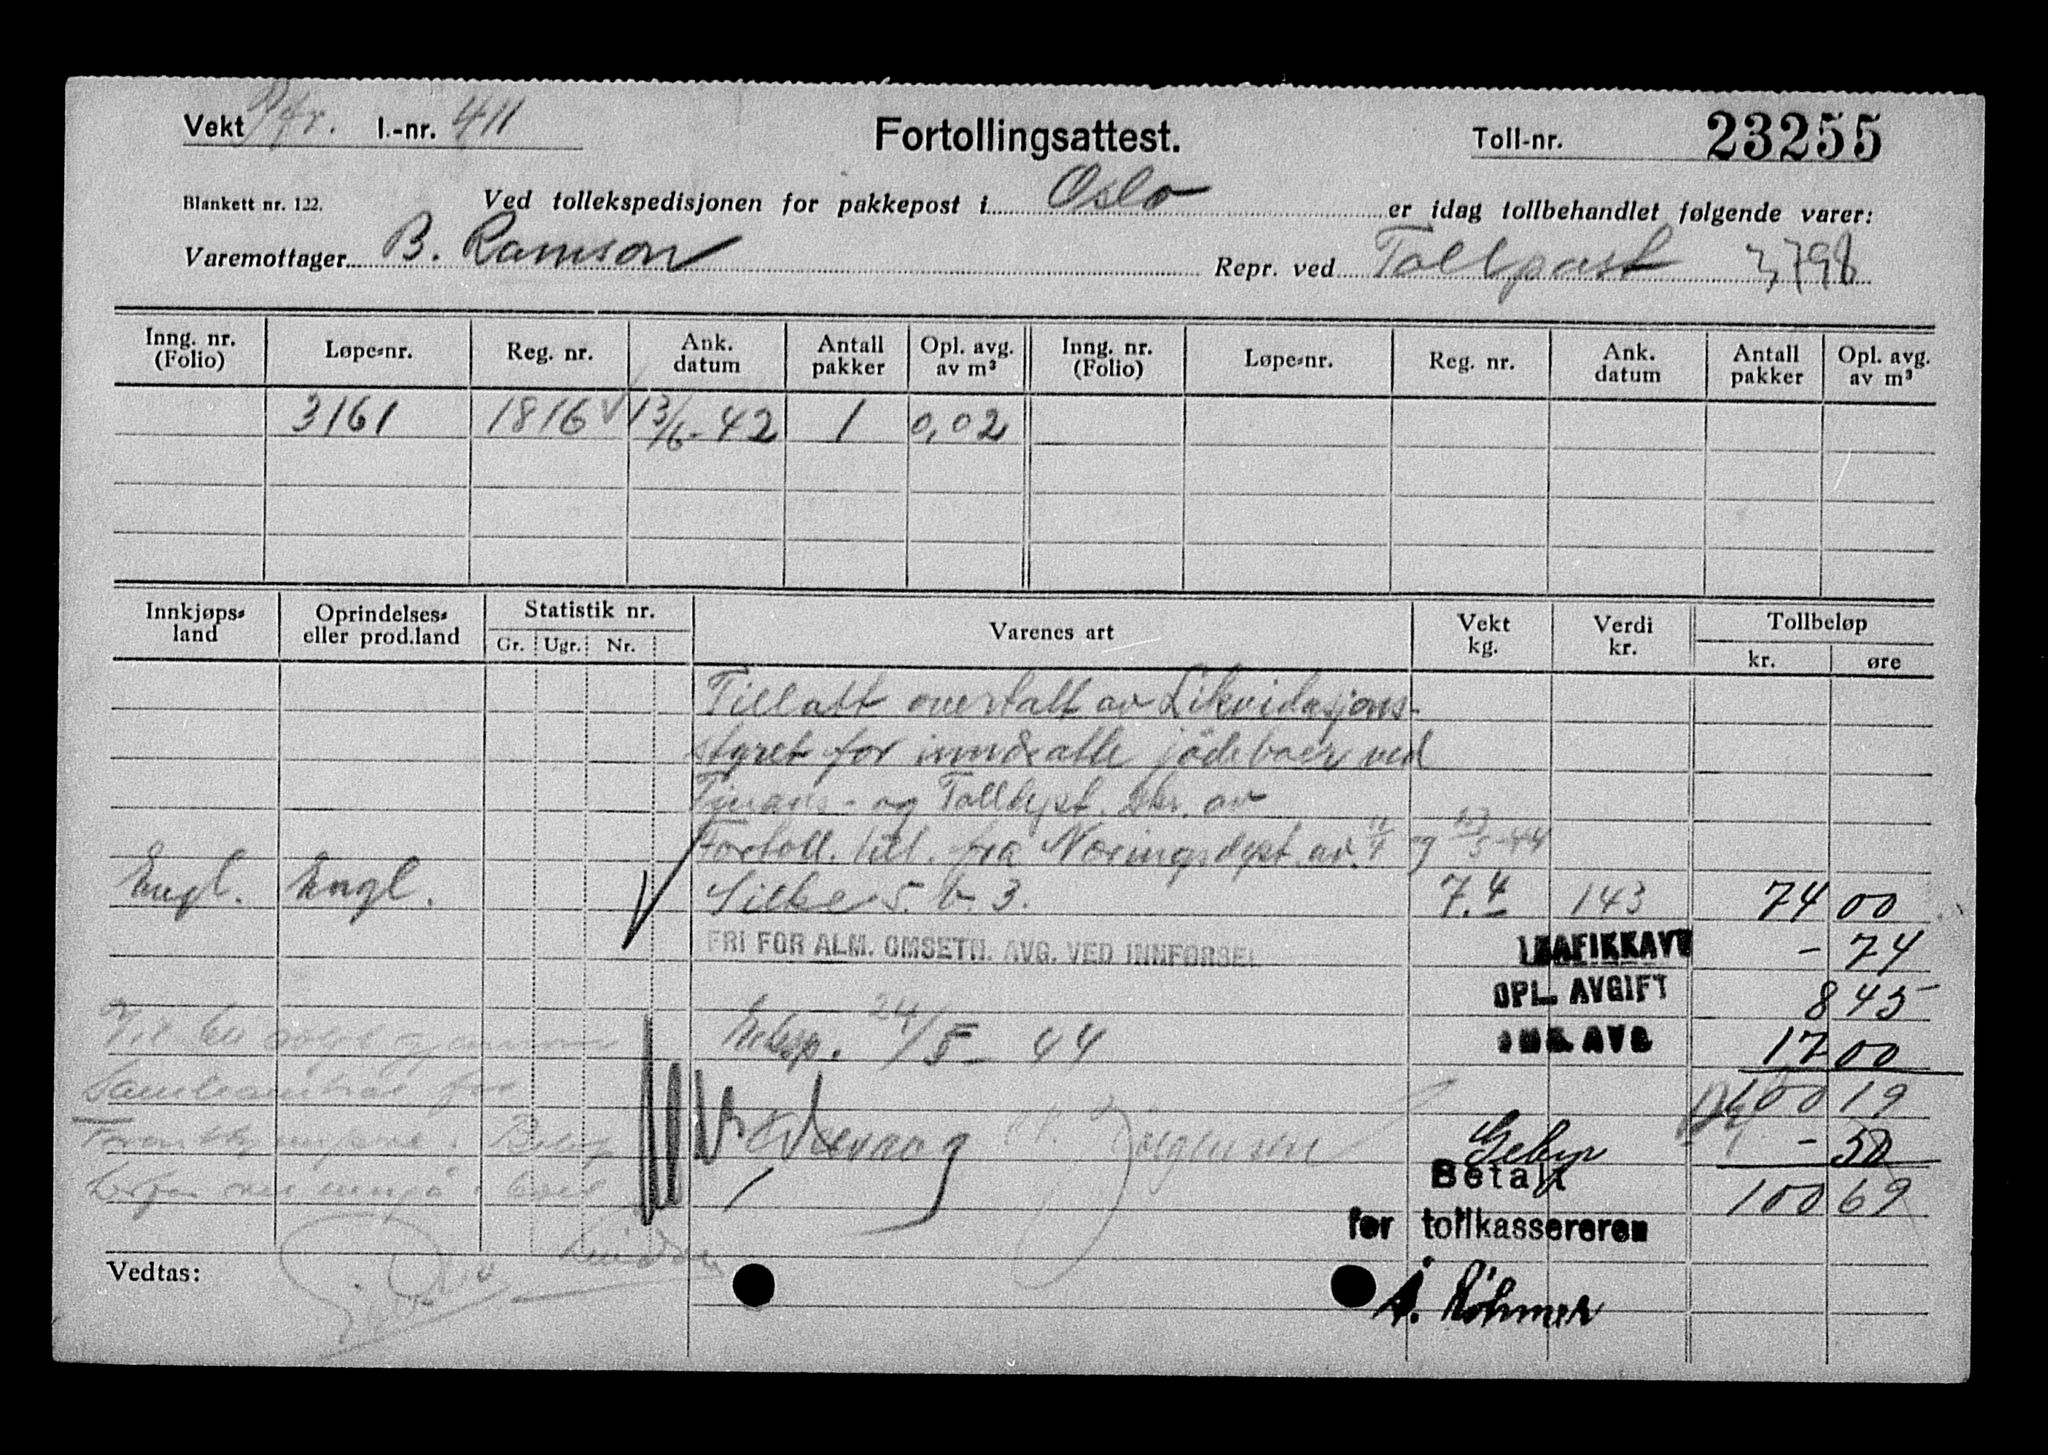 Vekt Pfr. l.-nr. 411 Fortollingsattest. Toll-nr. 23255
Blankett nr. 122. Ved tollekspedisjonen for pakkepost i Oslo er idag tollbehandlet følgende varer:
Varemottager B. Ramson Repr. ved Tollpost 3798
Inng. nr. (Folio) Løpe-nr. Reg. nr. Ank. datum Antall pakker Opl. avg. av m³ Inng. nr. (Folio) Løpe-nr. Reg. nr. Ank. datum Antall pakker Opl. avg. av m³
3161 1816 13/6-42 1 0,02
Innkjøps-land Oprindelses- eller prod.land Statistik nr. Varenes art Vekt kg. Verdi kr. Tollbeløp
Gr. Ugr. Nr. kr. øre
Tillatt overtatt av Likvidasjons-
styret for inndratte jödeboer ved
Finans- og Tolldept.
Fortoll. till. fra Næringsdept. av
Engl. Engl. Silke 5. b. 3. 7.4 143 74 00
FRI FOR ALM. OMSETN. AVG. VED INNFØRSEL TRAFIKKAVG - 74
OPL. AVGIFT 8 45
Eksp. 24/5-44 OMS. AVG 17 00
100 19
Gebyr - 50
Betalt 100 69
for tollkassereren
Vedtas:
A. Röhmer